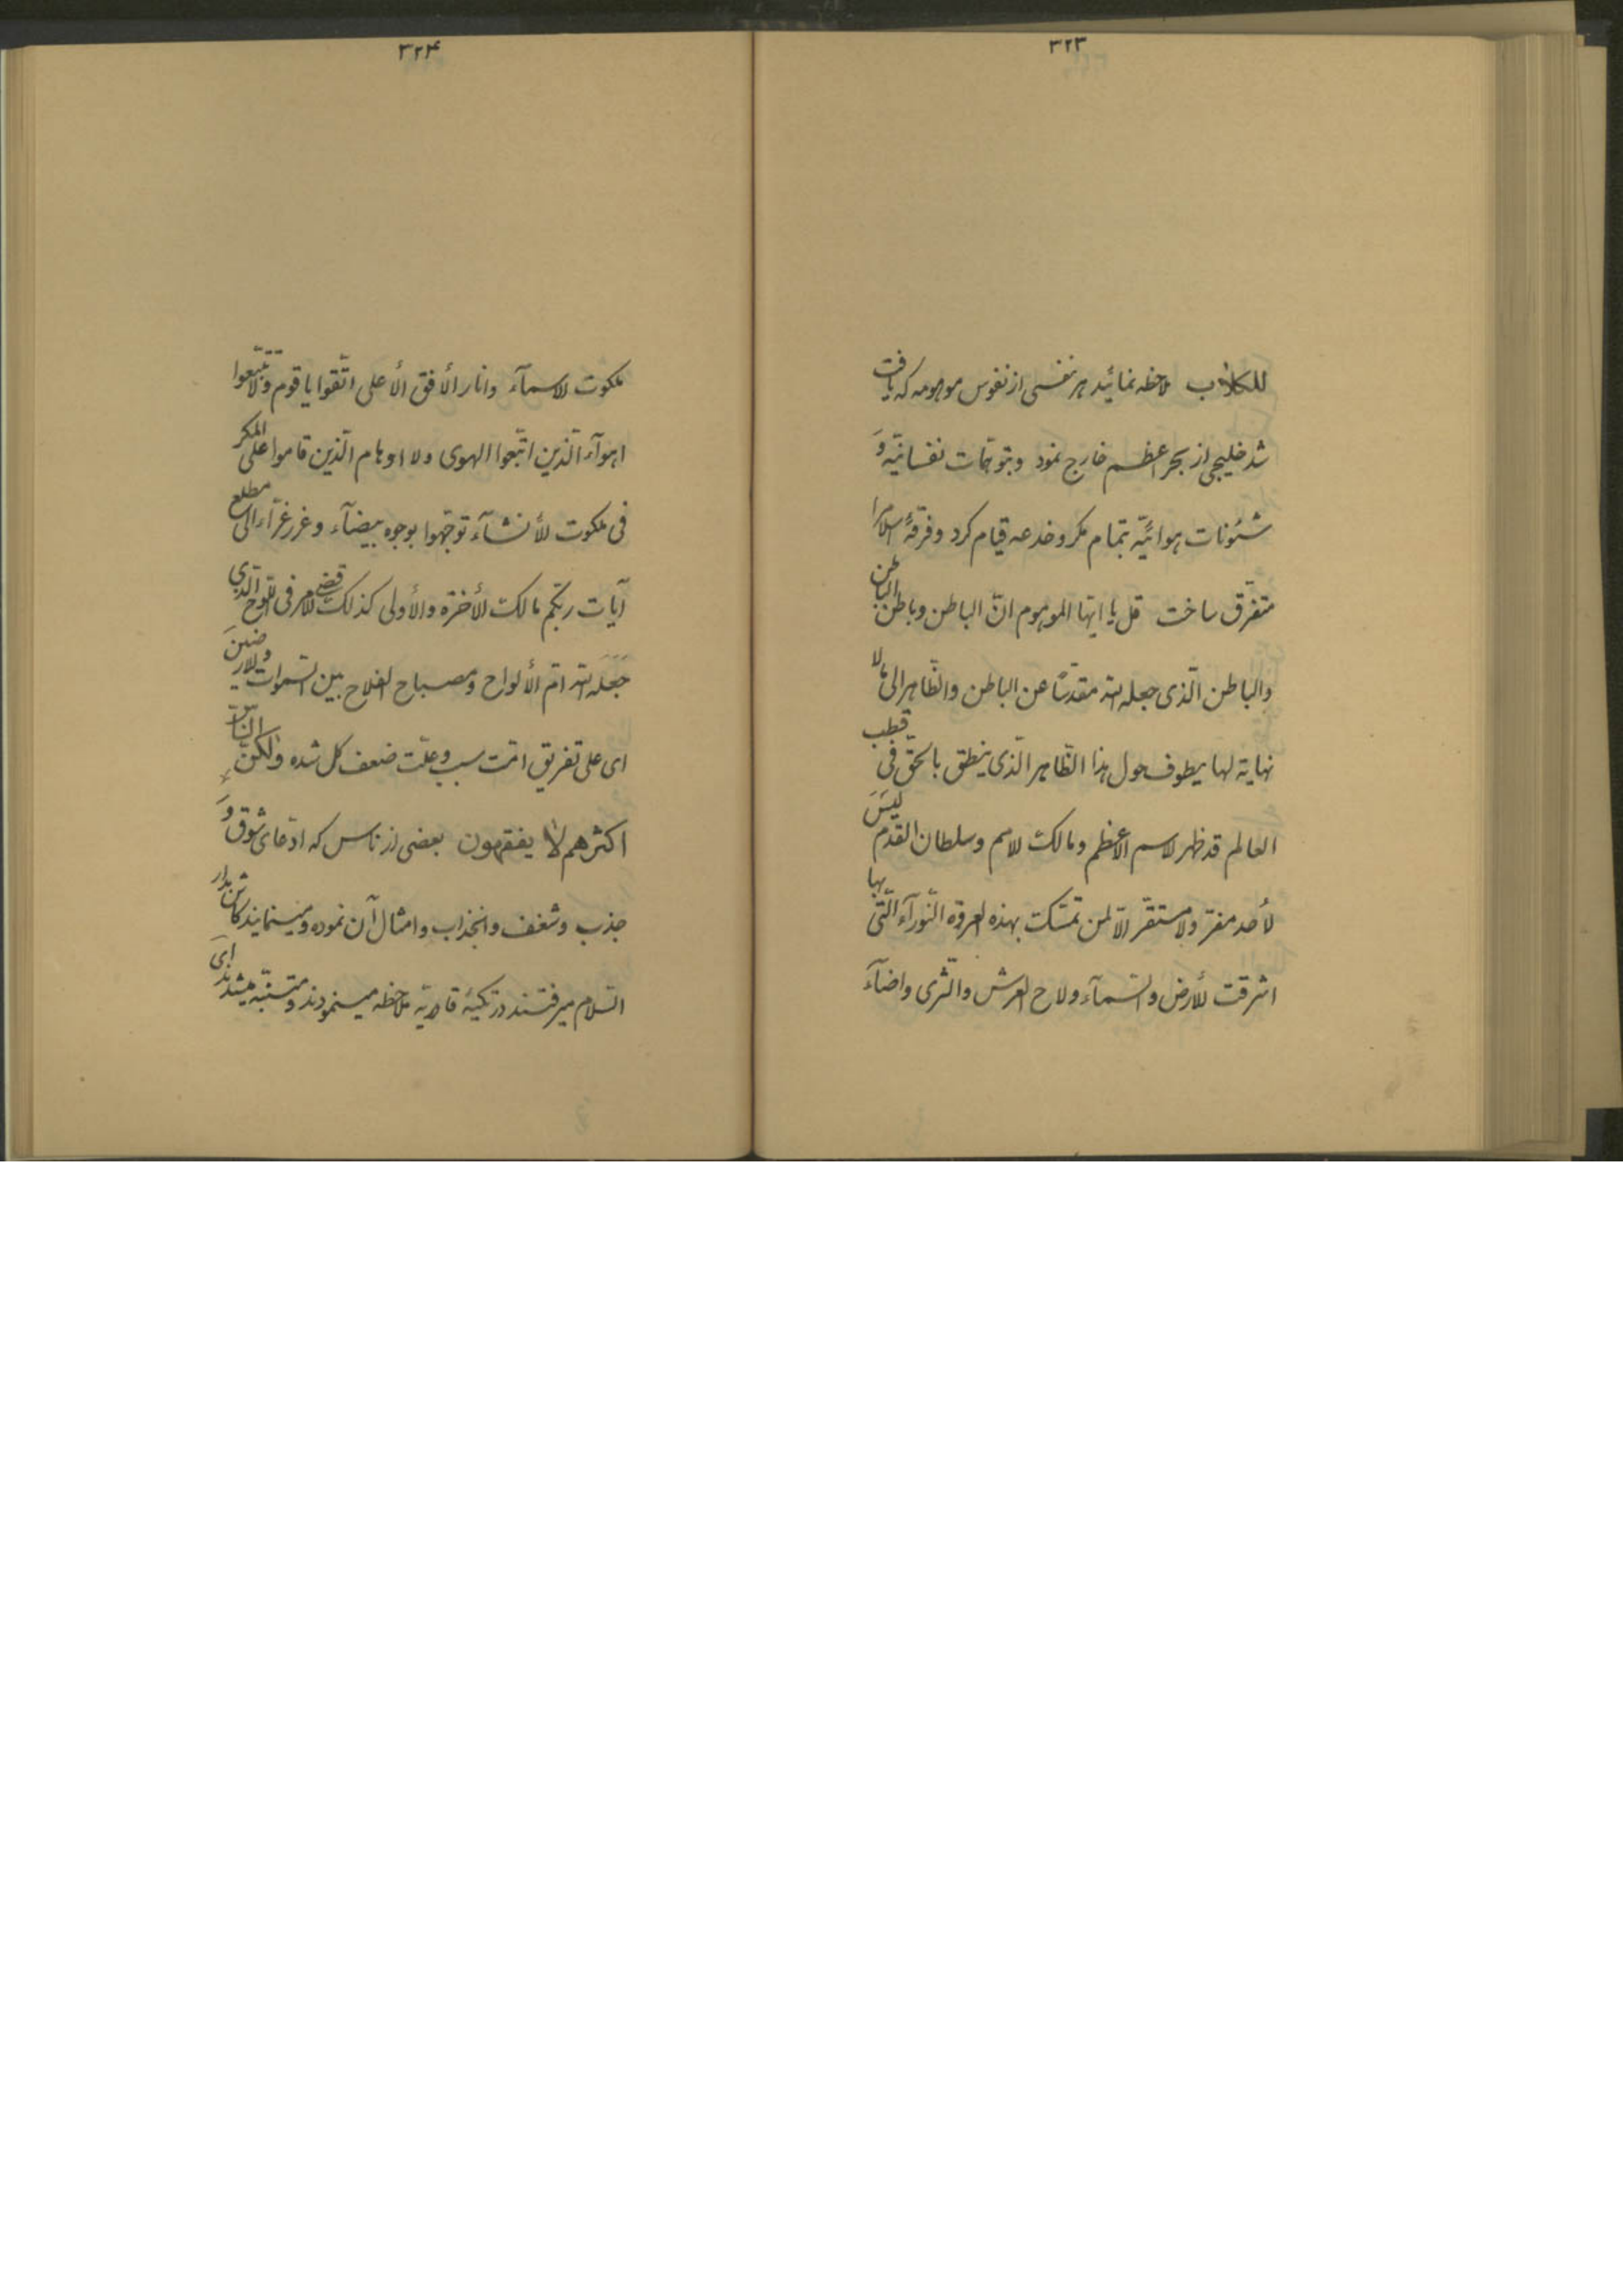 ۳۲۳
للکلاب ملاحظه نمائید هر نفسی از نفوس موهومه که یافت
شد خلیجی از بحر اعظم خارج نمود و بتوهّمات نفسانیّه وَ
شئونات هوائیّه بتمام مکر و خدعه قیام کرد و فرقهٔ اسلام را
متفرق ساخت قل یا ایّها الموهوم انّ الباطن و باطن الباطن
والباطن الّذی جعله الله مقدّسًا عن الباطن والظّاهر الی ما لا
نهایة لها یطوف حول هذا الظّاهر الّذی ینطق بالحقّ فی قطب
العالم قد ظهر الاسم الاعظم و مالک الامم و سلطان القدم لیسَ
لأحد مفرّ ولا مستقرّ الّا لمن تمسّک بهذه العروة النّورآء الّتی بها
اشرقت الأرض والسّمآء ولاح العرش والثّری واضآءَ
۳۲۴
ملکوت الاسمآء وانار الأفق الأعلی اتّقوا یا قوم ولا تتّبعوا
اهوآء الّذین اتّبعوا الهوی ولا اوهام الّذین قاموا علی المکر
فی ملکوت الأنشآء توجّهوا بوجوه بیضآء و غرر غرّاء الی مطلع
آیات ربّکم مالک الأخرة والأولی کذلک قضی الأمر فی اللّوح الّذی
جَعَلَه الله امّ الألواح ومصباح الفلاح بین السّموات والارضینَ
ای علی تفریق امّت سبب و علّت ضعف کل شده ولکنّ النّاسَ
اکثرهم لا یفقهون بعضی از ناس که ادّعای شوق وَ
جذب و شغف و انجذاب و امثال آن نموده و مینمایند کاش بدار
السّلام میرفتند در تکیهٔ قادریّه ملاحظه مینمودند و متنبّه میشدند ایَ